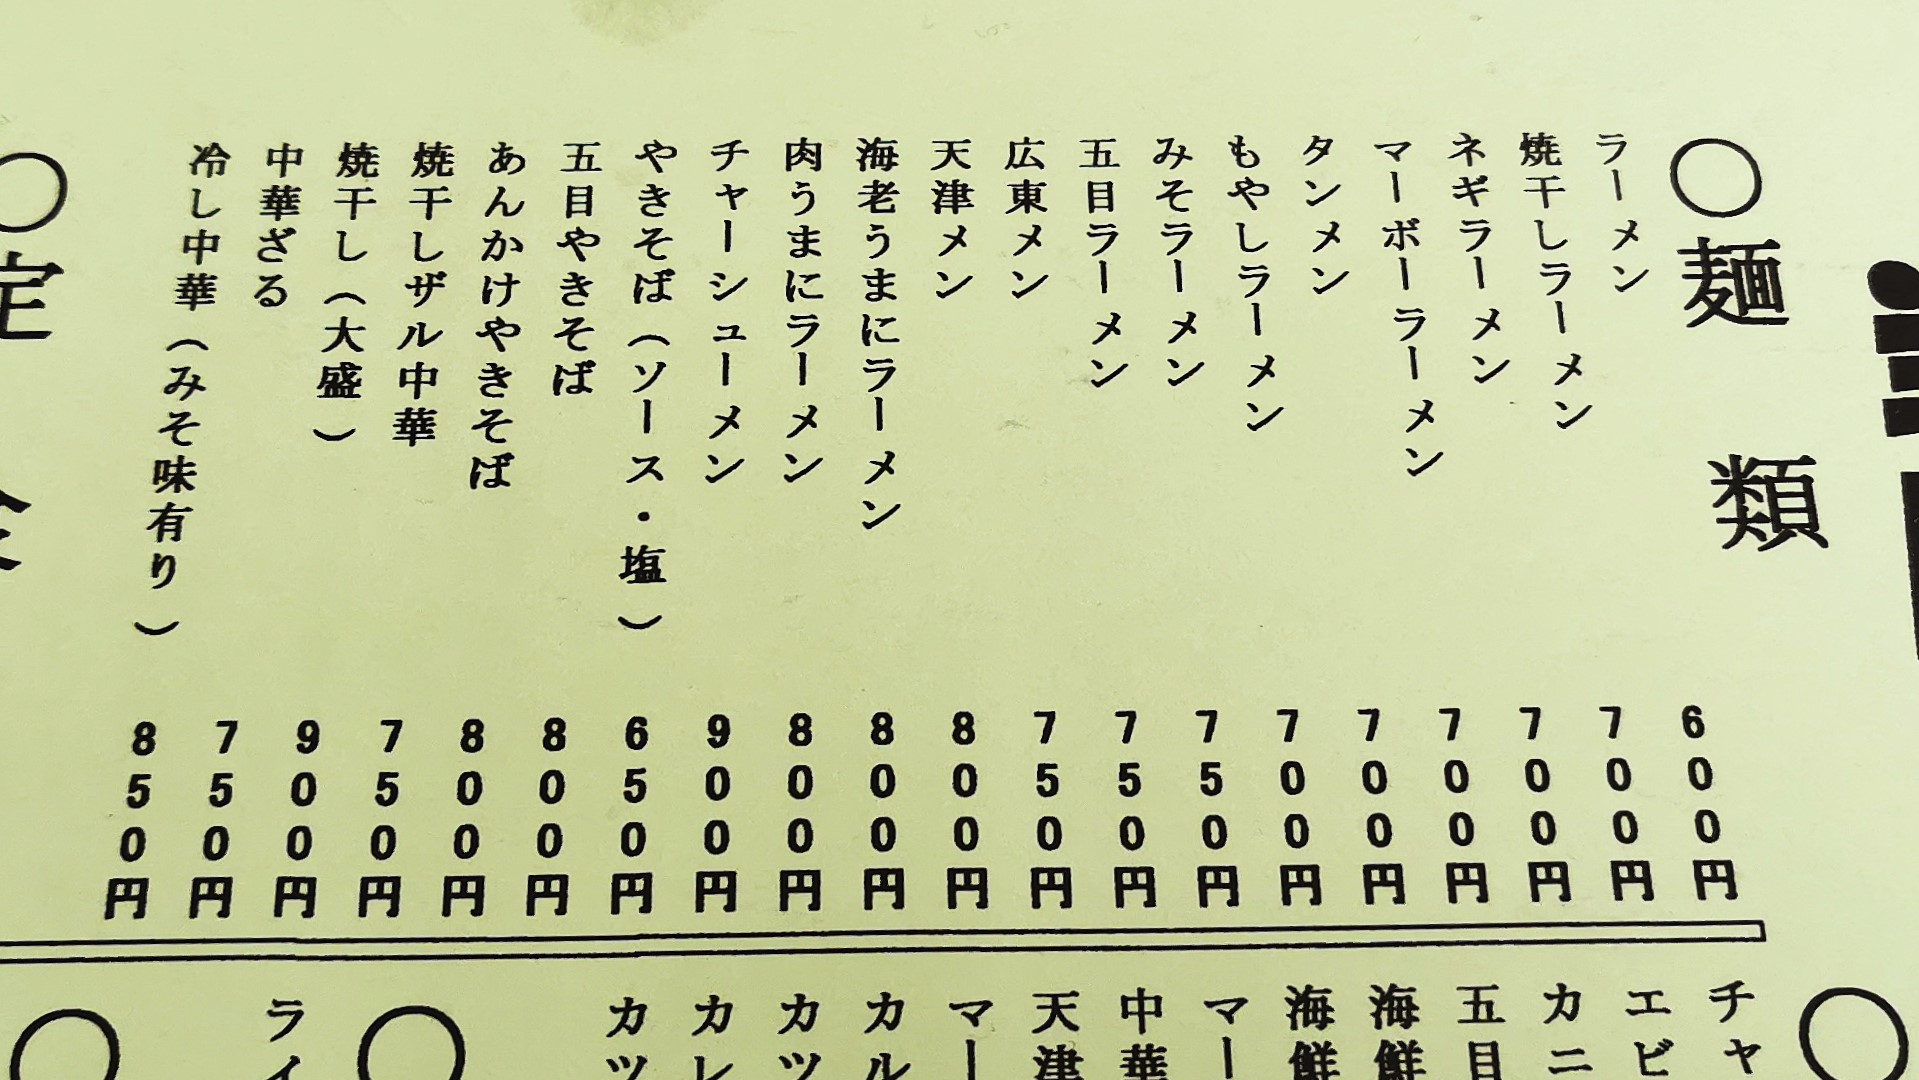 ○麺類
ラーメン 600円
焼干しラーメン 700円
ネギラーメン 700円
マーボーラーメン 700円
タンメン 700円
もやしラーメン 700円
みそラーメン 750円
五目ラーメン 750円
広東メン 750円
天津メン 800円
海老うまにラーメン 800円
肉うまにラーメン 800円
チャーシューメン 900円
やきそば（ソース・塩） 650円
五目やきそば 800円
あんかけやきそば 800円
焼干しザル中華 750円
焼干し（大盛） 900円
中華ざる 750円
冷し中華（みそ味有り） 850円
○定
○
チャ
エビ
カニ
五目
海鮮
海鮮
マー
中華
天津
マー
カル
カツ
カレ
カツ
○
ライ
○